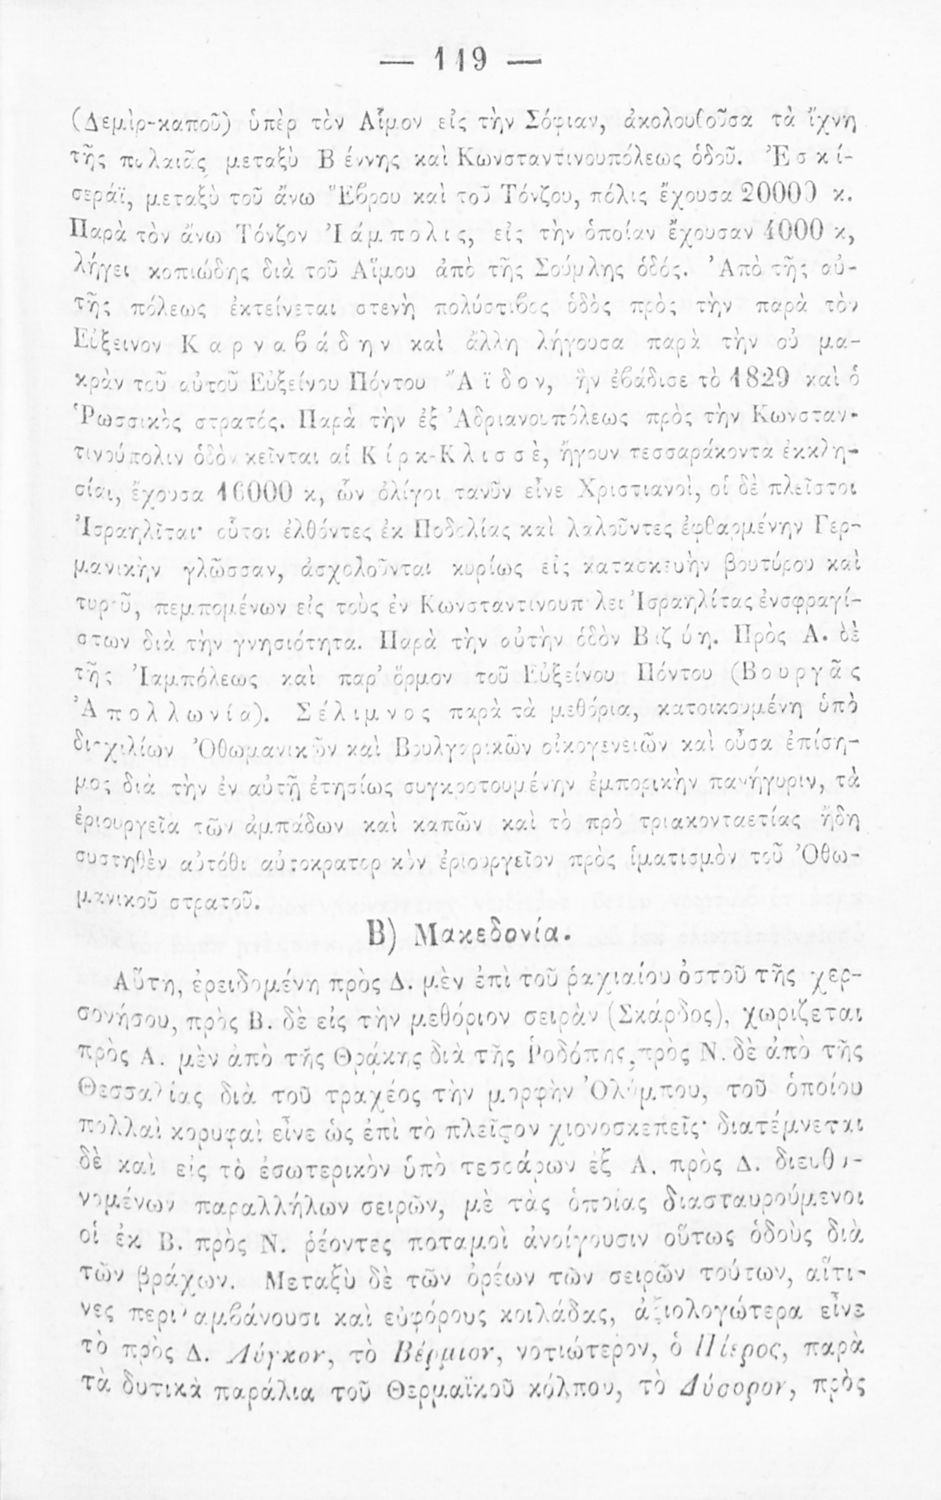 — 119 —
(Δεμὶρ-καποῦ) ὑπὲρ τὸν Αἷμον εἰς τὴν Σόφιαν, ἀκολουθοῦσα τὰ ἴχνη
τῆς παλαιᾶς μεταξὺ Βέννης καὶ Κωνσταντινουπόλεως ὁδοῦ. Ἐσκί-
σεράϊ, μεταξὺ τοῦ ἄνω Ἕβρου καὶ τοῦ Τόνζου, πόλις ἔχουσα 20000 κ.
Παρὰ τὸν ἄνω Τόνζον Ἰάμπολις, εἰς τὴν ὁποίαν ἔχουσαν 4000 κ,
λήγει κοπιώδης διὰ τοῦ Αἵμου ἀπὸ τῆς Σούμλης ὁδός. Ἀπὸ τῆς αὐ-
τῆς πόλεως ἐκτείνεται στενὴ πολύστιβος ὁδὸς πρὸς τὴν παρὰ τὸν
Εὔξεινον Καρναβάδην καὶ ἄλλη λήγουσα παρὰ τὴν οὐ μα-
κρὰν τοῦ αὐτοῦ Εὐξείνου Πόντου Ἄϊδον, ἣν ἐβάδισε τὸ 1829 καὶ ὁ
Ῥωσσικὸς στρατός. Παρὰ τὴν ἐξ Ἀδριανουπόλεως πρὸς τὴν Κωνσταν-
τινούπολιν ὁδὸν κεῖνται αἱ Κίρκ-Κλισσὲ, ἤγουν τεσσαράκοντα ἐκκλη-
σίαι, ἔχουσα 16000 κ, ὧν ὀλίγοι τανῦν εἶνε Χριστιανοὶ, οἱ δὲ πλεῖστοι
Ἰσραηλῖται· οὗτοι ἐλθόντες ἐκ Ποδολίας καὶ λαλοῦντες ἐφθαρμένην Γερ-
μανικὴν γλῶσσαν, ἀσχολοῦνται κυρίως εἰς κατασκευὴν βουτύρου καὶ
τυροῦ, πεμπομένων εἰς τοὺς ἐν Κωνσταντινουπόλει Ἰσραηλίτας ἐνσφραγί-
στων διὰ τὴν γνησιότητα. Παρὰ τὴν αὐτὴν ὁδὸν Βιζύη. Πρὸς Α. δὲ
τῆς Ἰαμπόλεως καὶ παρ' ὅρμον τοῦ Εὐξείνου Πόντου (Βουργᾶς
Ἀπολλωνία). Σέλιμνος παρὰ τὰ μεθόρια, κατοικουμένη ὑπὸ
δισχιλίων Ὀθωμανικῶν καὶ Βουλγαρικῶν οἰκογενειῶν καὶ οὖσα ἐπίση-
μος διὰ τὴν ἐν αὐτῇ ἐτησίως συγκροτουμένην ἐμπορικὴν πανήγυριν, τὰ
ἐριουργεῖα τῶν ἀμπάδων καὶ καπῶν καὶ τὸ πρὸ τριακονταετίας ἤδη
συστηθὲν αὐτόθι αὐτοκρατορικὸν ἐριουργεῖον πρὸς ἱματισμὸν τοῦ Ὀθω-
μανικοῦ στρατοῦ.
Β) Μακεδονία.
Αὕτη, ἐρειδομένη πρὸς Δ. μὲν ἐπὶ τοῦ ῥαχιαίου ὀστοῦ τῆς χερ-
σονήσου, πρὸς Β. δὲ εἰς τὴν μεθόριον σειρὰν (Σκάρδος), χωρίζεται
πρὸς Α. μὲν ἀπὸ τῆς Θράκης διὰ τῆς Ῥοδόπης, πρὸς Ν. δὲ ἀπὸ τῆς
Θεσσαλίας διὰ τοῦ τραχέος τὴν μορφὴν Ὀλύμπου, τοῦ ὁποίου
πολλαὶ κορυφαὶ εἶνε ὡς ἐπὶ τὸ πλεῖστον χιονοσκεπεῖς· διατέμνεται
δὲ καὶ εἰς τὸ ἐσωτερικὸν ὑπὸ τεσσάρων ἐξ Α. πρὸς Δ. διευθυ-
νομένων παραλλήλων σειρῶν, μὲ τὰς ὁποίας διασταυρούμενοι
οἱ ἐκ Β. πρὸς Ν. ῥέοντες ποταμοὶ ἀνοίγουσιν οὕτως ὁδοὺς διὰ
τῶν βράχων. Μεταξὺ δὲ τῶν ὀρέων τῶν σειρῶν τούτων, αἵτι-
νες περιλαμβάνουσι καὶ εὐφόρους κοιλάδας, ἀξιολογώτερα εἶνε
τὸ πρὸς Δ. Λύγκον, τὸ Βέρμιον, νοτιώτερον, ὁ Πίερος, παρὰ
τὰ δυτικὰ παράλια τοῦ Θερμαϊκοῦ κόλπου, τὸ Δύσορον, πρὸς